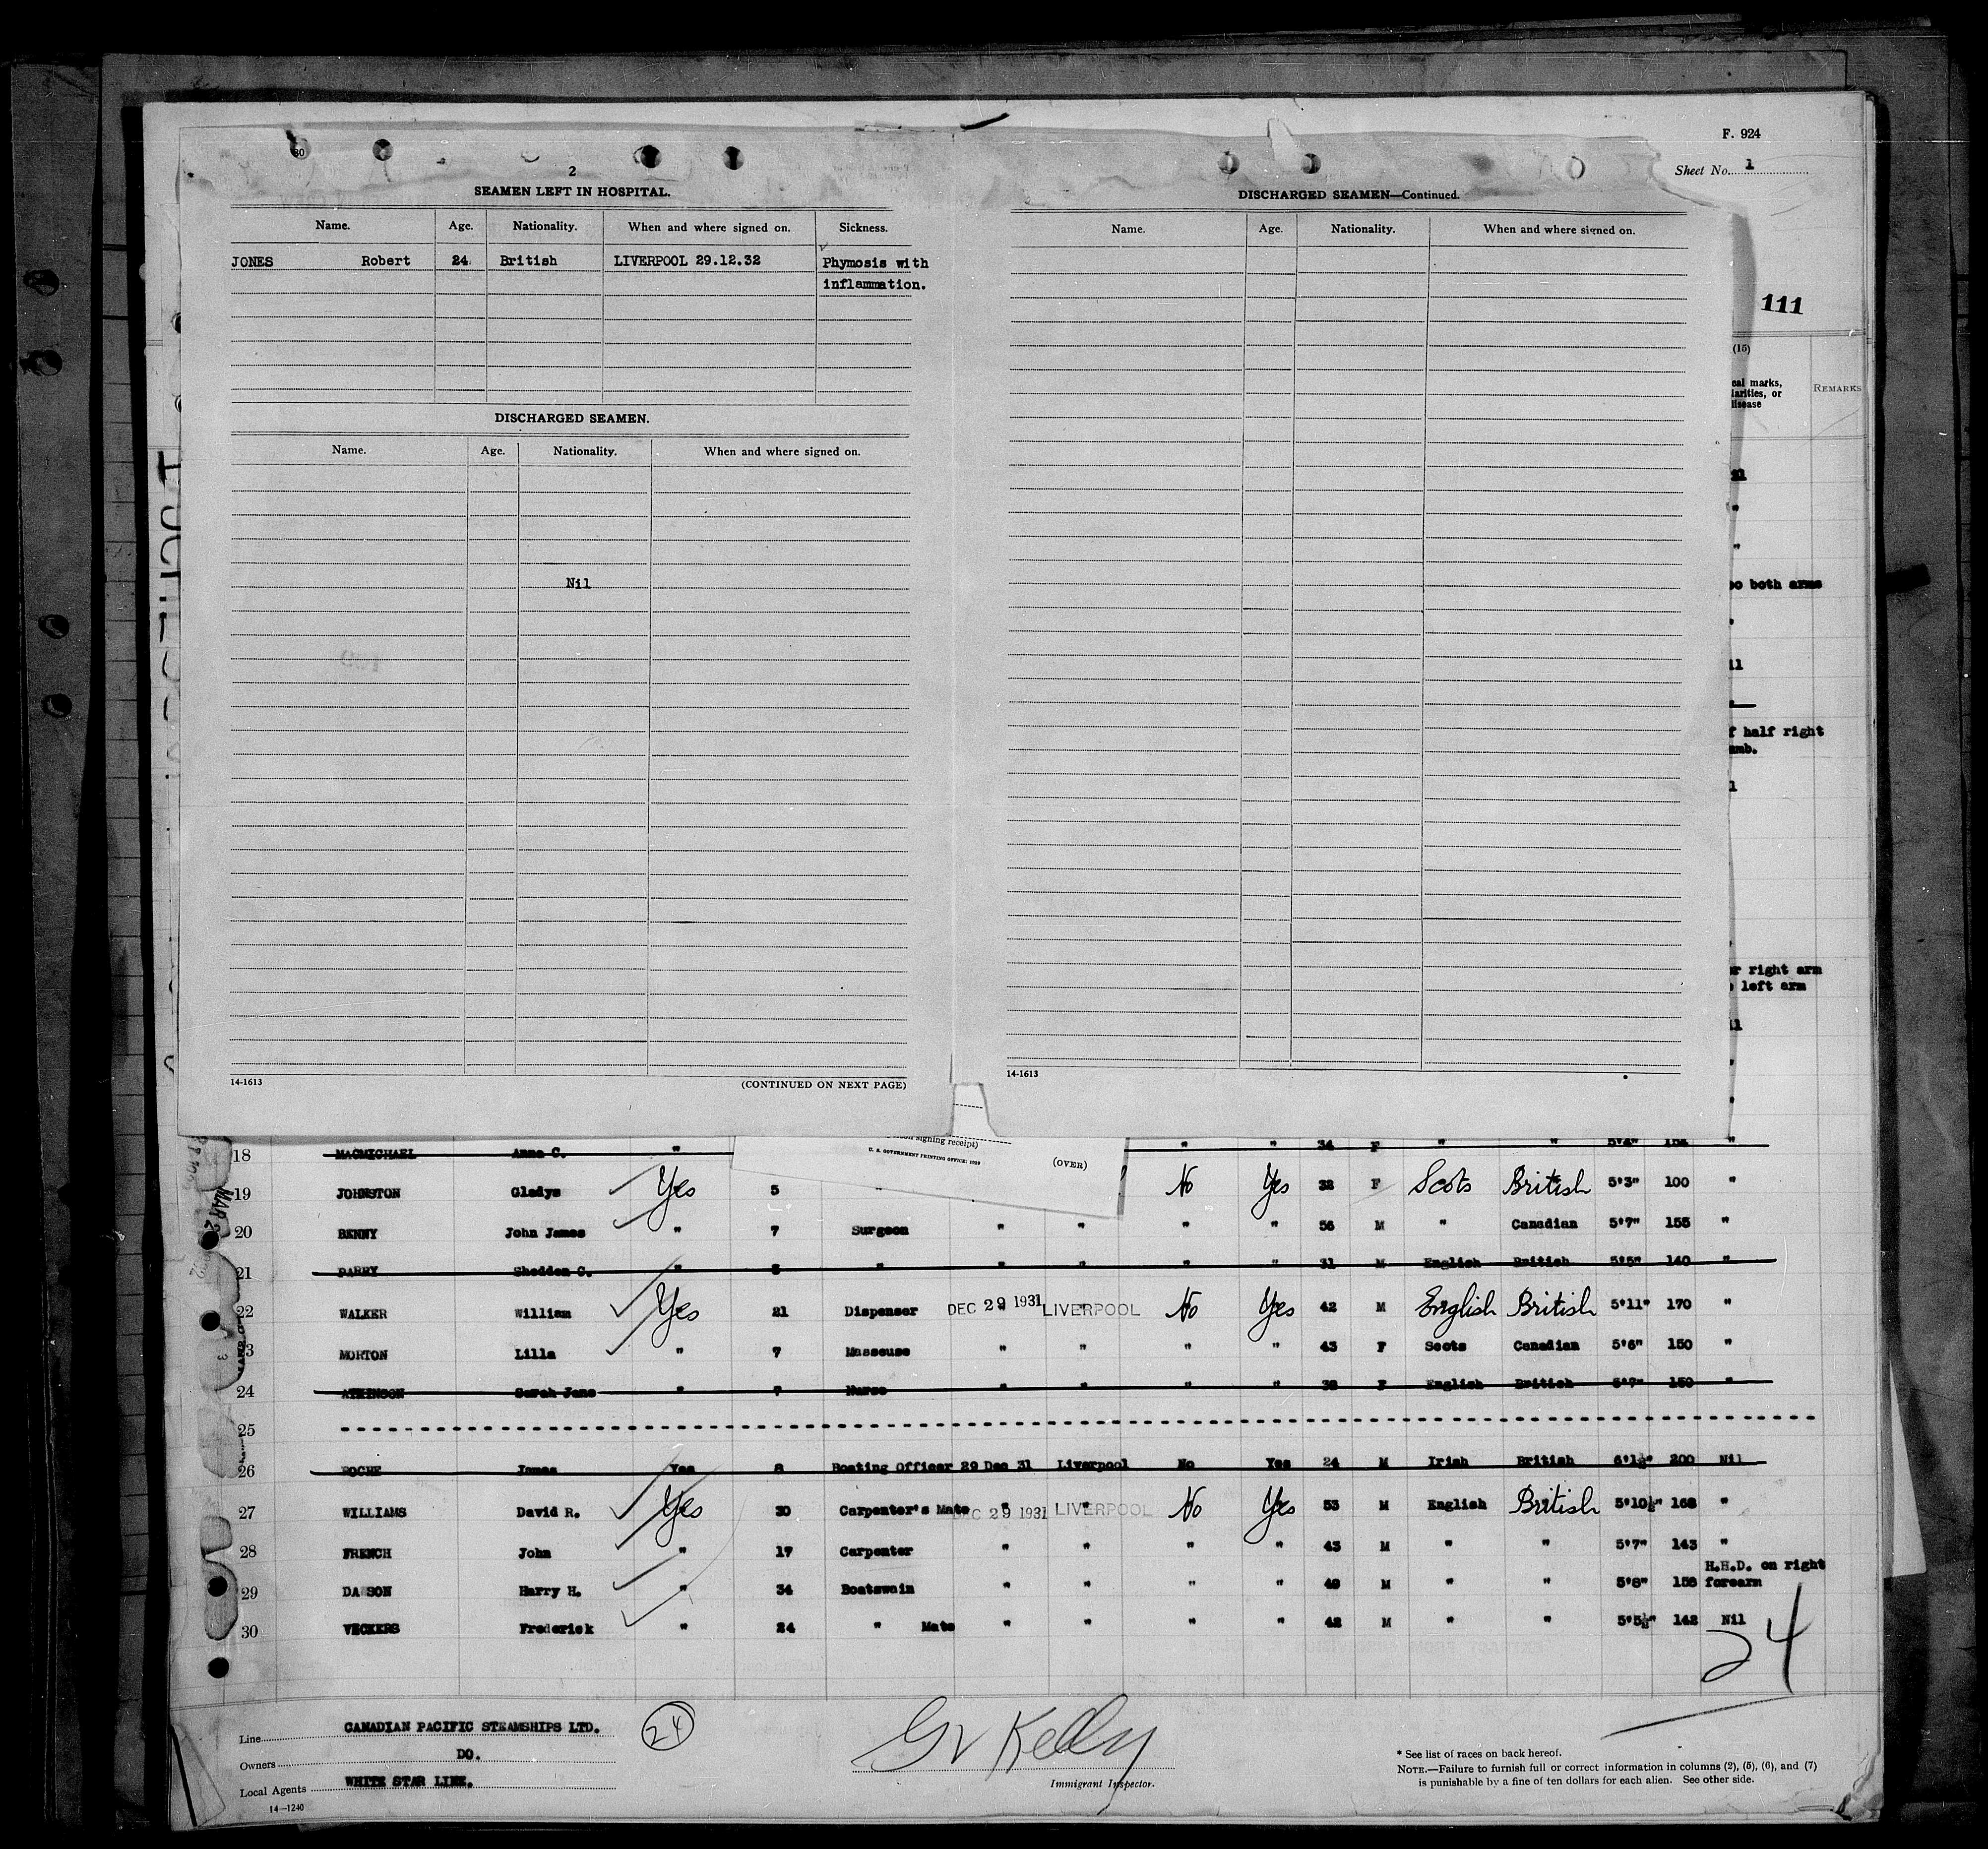 F. 924
Sheet No. 1
80
2
SEAMEN LEFT IN HOSPITAL.
Name. Age. Nationality. When and where signed on. Sickness.
JONES Robert 24 British LIVERPOOL 29.12.32 Phymosis with
inflammation.
DISCHARGED SEAMEN.
Name. Age. Nationality. When and where signed on.
Nil
14-1613 (CONTINUED ON NEXT PAGE)
DISCHARGED SEAMEN—Continued.
Name. Age. Nationality. When and where signed on.
14-1613
111
(15)
marks,
or
REMARKS
both arms
half right
right arm
left arm
signing receipt)
U. S. GOVERNMENT PRINTING OFFICE: 1929
(OVER)
18 MACMICHAEL Anna C. " " " 34 F " " "
19 JOHNSTON Gladys Yes 5 No Yes 32 F Scots British 5'3" 100 "
20 BENNY John James " 7 Surgeon " " " " 56 M " Canadian 5'7" 155 "
21 PARRY Sheddon C. " " " " " " 31 M English British 5'5" 140 "
22 WALKER William Yes 21 Dispenser DEC 29 1931 LIVERPOOL No Yes 42 M English British 5'11" 170 "
MORTON Lilla " 7 Masseuse " " " " 43 F Scots Canadian 5'6" 150 "
24 ATKINSON Sarah Jane " 7 Nurse " " " " 38 F English British 150 "
25
26 ROCHE James Yes 8 Boating Officer 29 Dec 31 Liverpool No Yes 24 M Irish British 6'1½" 200 Nil
27 WILLIAMS David R. Yes 30 Carpenter's Mate DEC 29 1931 LIVERPOOL No Yes 53 M English British 5'10½" 168 "
28 FRENCH John " 17 Carpenter " " " " 43 M " " 5'7" 143 "
H.H.D. on right
29 DAWSON Harry H. " 34 Boatswain " " " " 49 M " " 5'8" 158 forearm
30 VECKERS Frederick " 24 " Mate " " " " 42 M " " 5'5½" 142 Nil
24
Line CANADIAN PACIFIC STEAMSHIPS LTD.
24
Owners DO.
Local Agents WHITE STAR LINE.
14—1240
GV Kelly
Immigrant Inspector.
* See list of races on back hereof.
NOTE.—Failure to furnish full or correct information in columns (2), (5), (6), and (7)
is punishable by a fine of ten dollars for each alien. See other side.